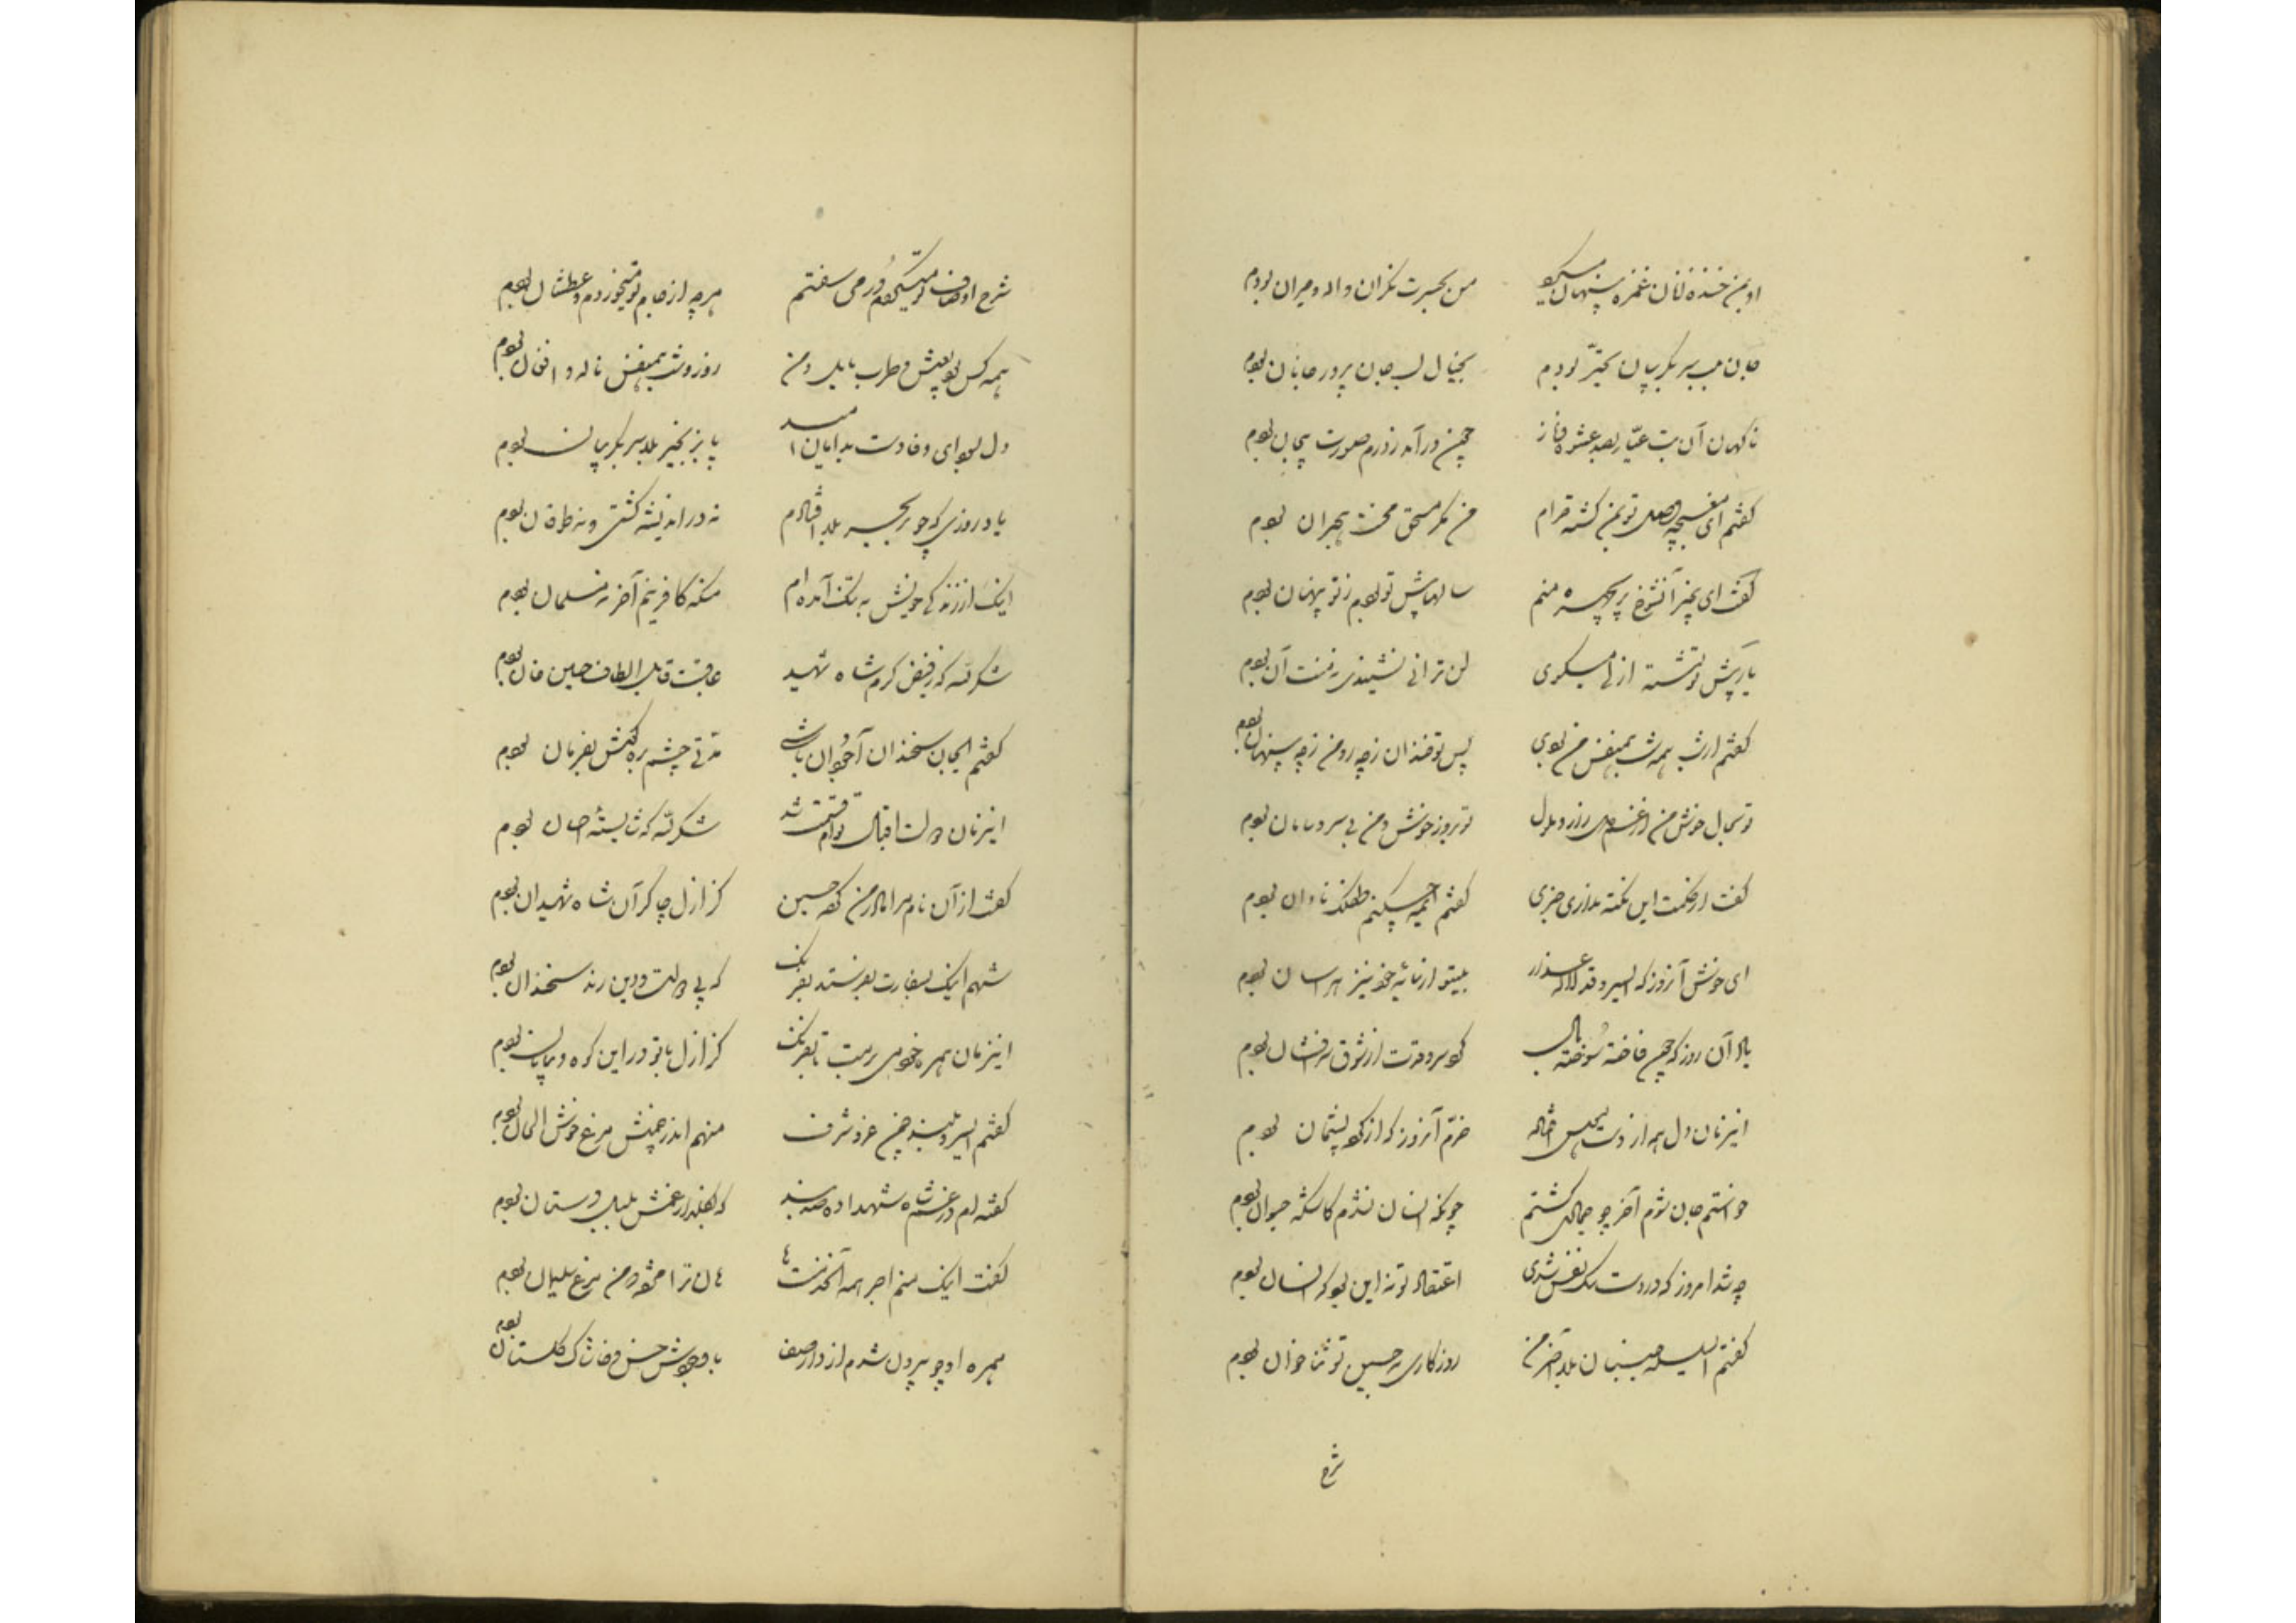 او بمن خنده زنان غمزه پنهان میکرد من بحیرت نگران واله و حیران بودم
جان بسر بگریبان تحیر بودم بخیال لب جان پرور جانان بودم
ناگهان آن بت عیار بصد عشوه و ناز درآمد ز درم صورت بیجان بودم
گفتم ای مغبچه وصل تو بمن گشته حرام من مگر مستحق محنت هجران بودم
گفت ای بیخبر آنشوخ پریچهره منم سالها پیش تو بودم ز تو پنهان بودم
یار پیش تو نشسته ارنی میگوی لن ترانی نشنیدی منت آن بودم
گفتم ار شب همه شب همنفس من بودی پس تو خندان ز چه رو من ز چه پنهان بودم
تو بحال خوش من از غم دل زار و ملول تو بروز خوش و من بی سر و سامان بودم
گفت از حکمت این نکته نداری خبری گفتم طفلک نادان بودم
ای خوش آنروز که ای سرو قد لاله عذار بیتو از سایه خود نیز هراسان بودم
یاد آن روز که چون فاخته سوخته بال گرد سرو قدت از شوق پرافشان بودم
اینزمان دل همه از دست خرم آنروز که از کرده پشیمان بودم
خواستم جان شوم آخر چو جمالش گشتم چونکه انسان نشدم کاشکه حیوان بودم
چه شد امروز که در دست سگ نفس شدی اعتقاد تو نه این بود که انسان بودم
گفتم روزگاری نه حسین تو ثنا خوان بودم
شرح
شرح اوصاف تو میگفتم و در می سفتم هر چه از جام تو میخوردم و عطشان بودم
همه کس بود بعیش و طرب مایل و من روز و شب همنفس ناله و افغان بودم
دل بسودای وفا دست بدامان امید پا بزنجیر بلا سر بگریبان بودم
یاد روزی که چو در بحر بلا افتادم نه در اندیشه کشتی و نه طوفان بودم
اینک از زندگی خویش به تنگ آمده ام من که کافر نیم آخر نه مسلمان بودم
شکر لله که ز فیض کرم شاه شهید عاقبت قابل الطاف حسین خان بودم
گفتم ایجان سخندان آخر مدتی چشم بره گوش بفرمان بودم
اینزمان دولت اقبال توام قسمت شد شکر لله که شایسته احسان بودم
گفت از آن نام مرا مادر من کرد حسین کز ازل چاکر آن شاه شهیدان بودم
شهم اینک بسفارت بفرستد بفرنگ که پی دولت و دین رند سخندان بودم
اینزمان همره خود می برمت تا بفرنگ کز ازل با تو در این کوه و بیابان بودم
گفتم ای سرو بلند چمن عز و شرف منهم اندر چمنش مرغ خوش الحان بودم
گفته ام در غم شاه شهدا ده صد بند که بگلزار غمش بلبل دستان بودم
گفت اینک منم اجر همه آنخدمتها هان ترا مژده و من مرغ سلیمان بودم
همره او چو برون شدم از دار صف با وجودش خس و خاشاک گلستان بودم